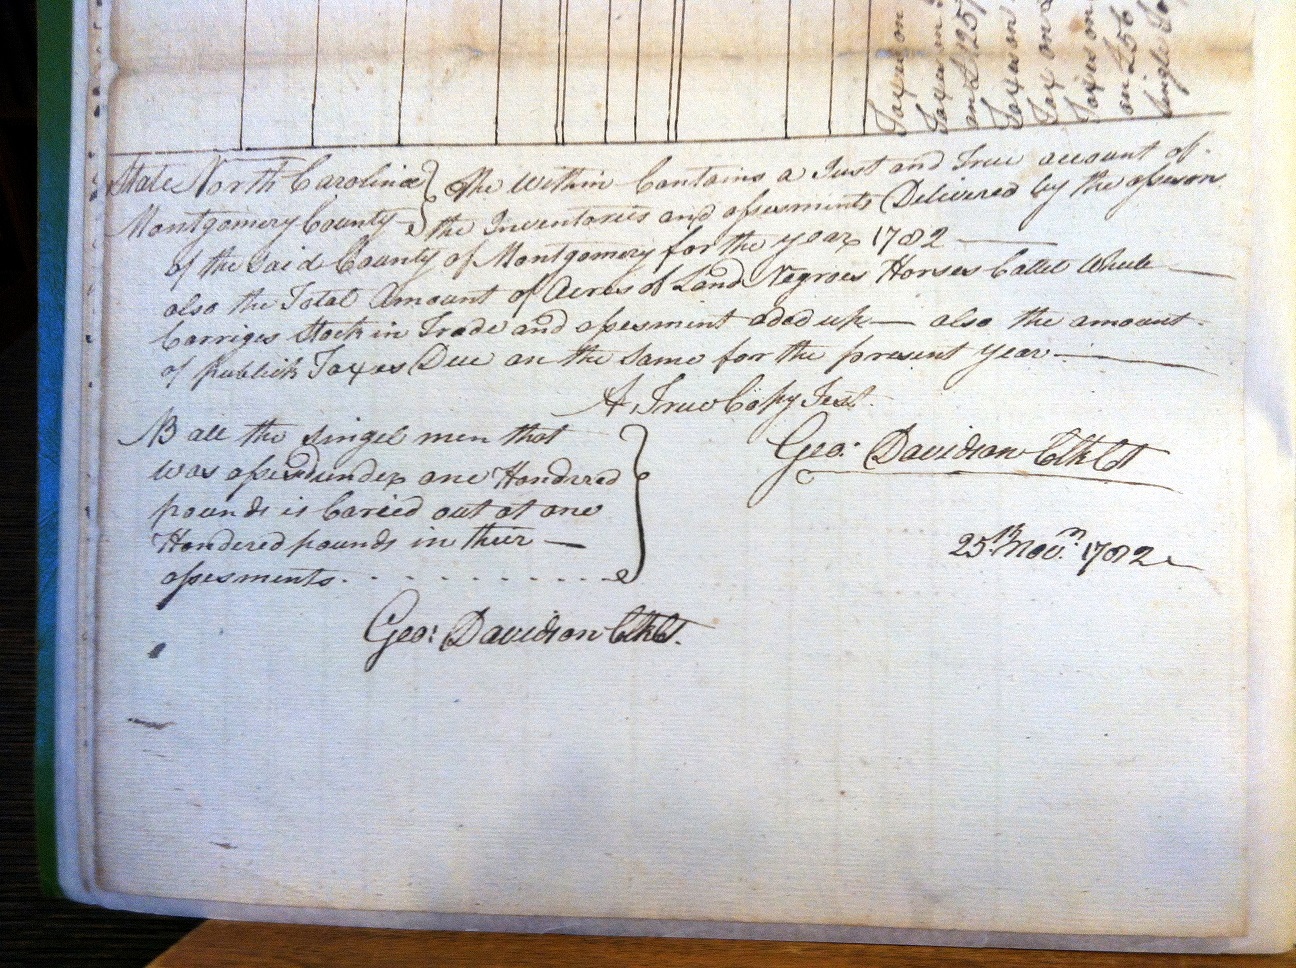 Taxes on
Taxes on
on £ 125/
Taxes on
Tax on
Taxes on
on £ 256
Single
State North Carolina } The Within Contains a Just and True account of
Montgomery County } the Inventories and assesments Delivered by the assesors
of the Said County of Montgomery for the year 1782
also the Total Amount of Acres of Land Negroes Horses Cattel Wheele
Carriges Stock in Trade and assesment added up — also the amount
of publick Taxes Due on the Same for the present year
A True Copy Test
Geo: Davidson Clk Ct
25th Novm. 1782
NB all the singel men that
was assesd under one Hundred
pounds is Caried out at one
Hondered pounds in their —
assesments
Geo: Davidson Clk Ct.